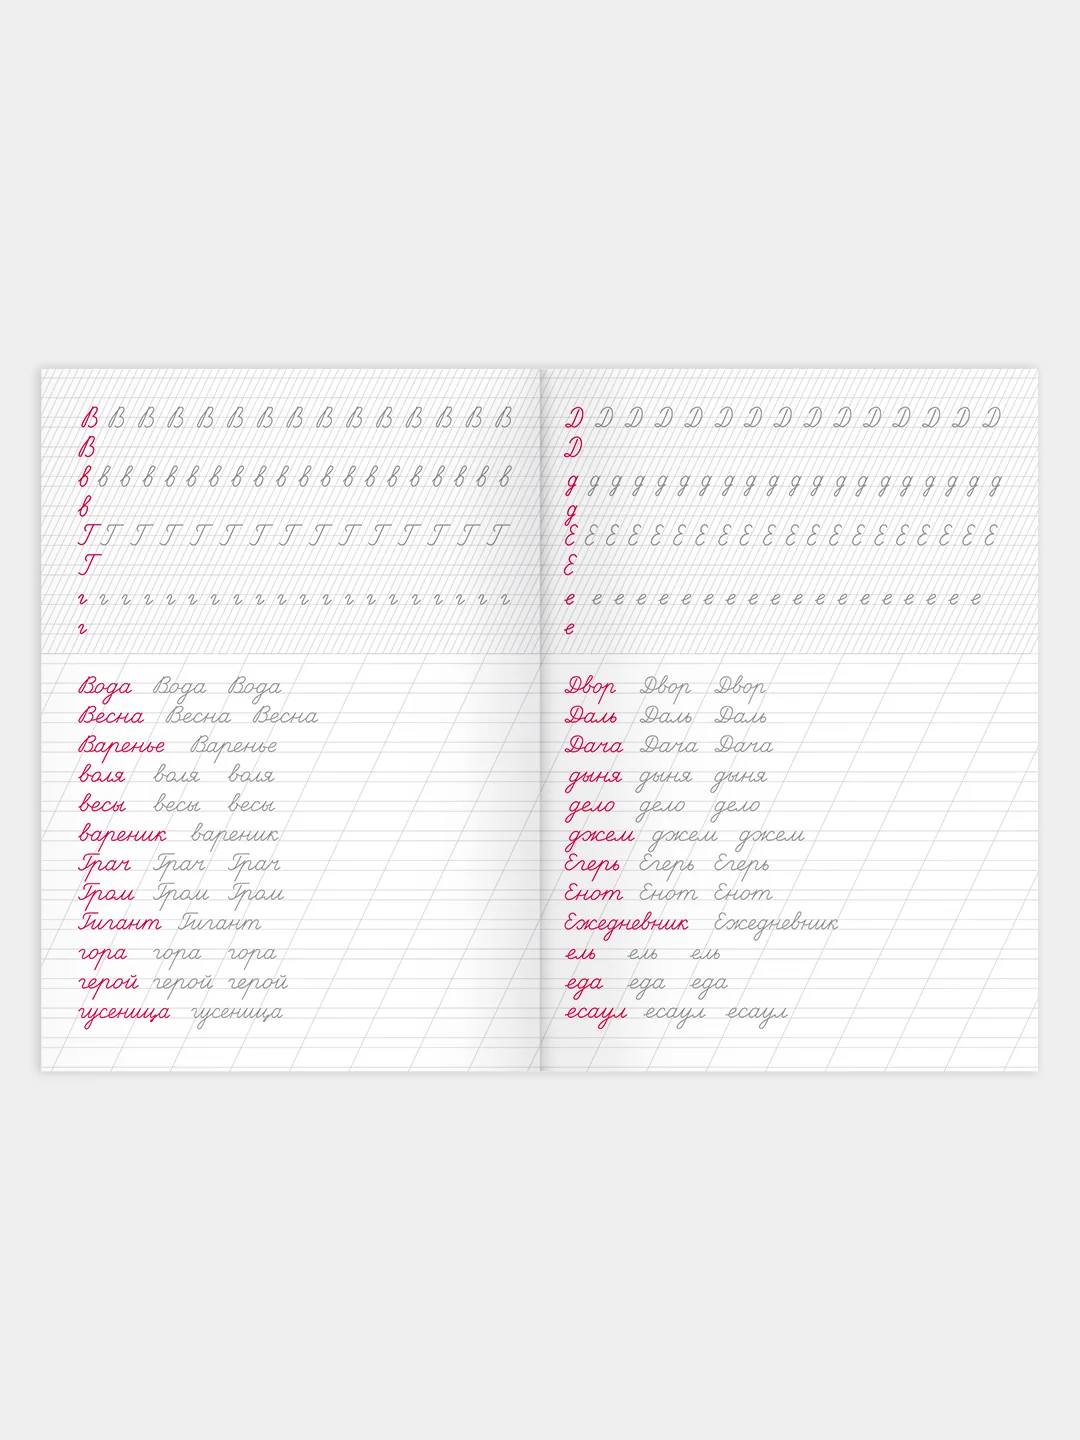 В В В В В В В В В В В В В В В
В
в в в в в в в в в в в в в в в в в в в в
в
Г Г Г Г Г Г Г Г Г Г Г Г Г Г Г
Г
г г г г г г г г г г г г г г г г г г г г
г
Вода Вода Вода
Весна Весна Весна
Варенье Варенье
воля воля воля
весы весы весы
вареник вареник
Грач Грач Грач
Гром Гром Гром
Гигант Гигант
гора гора гора
герой герой герой
гусеница гусеница
Д Д Д Д Д Д Д Д Д Д Д Д Д Д Д
Д
д д д д д д д д д д д д д д д д д д д д
д
Е Е Е Е Е Е Е Е Е Е Е Е Е Е Е Е Е Е Е Е
Е
е е е е е е е е е е е е е е е е е е е
е
Двор Двор Двор
Даль Даль Даль
Дача Дача Дача
дыня дыня дыня
дело дело дело
джем джем джем
Егерь Егерь Егерь
Енот Енот Енот
Ежедневник Ежедневник
ель ель ель
еда еда еда
есаул есаул есаул